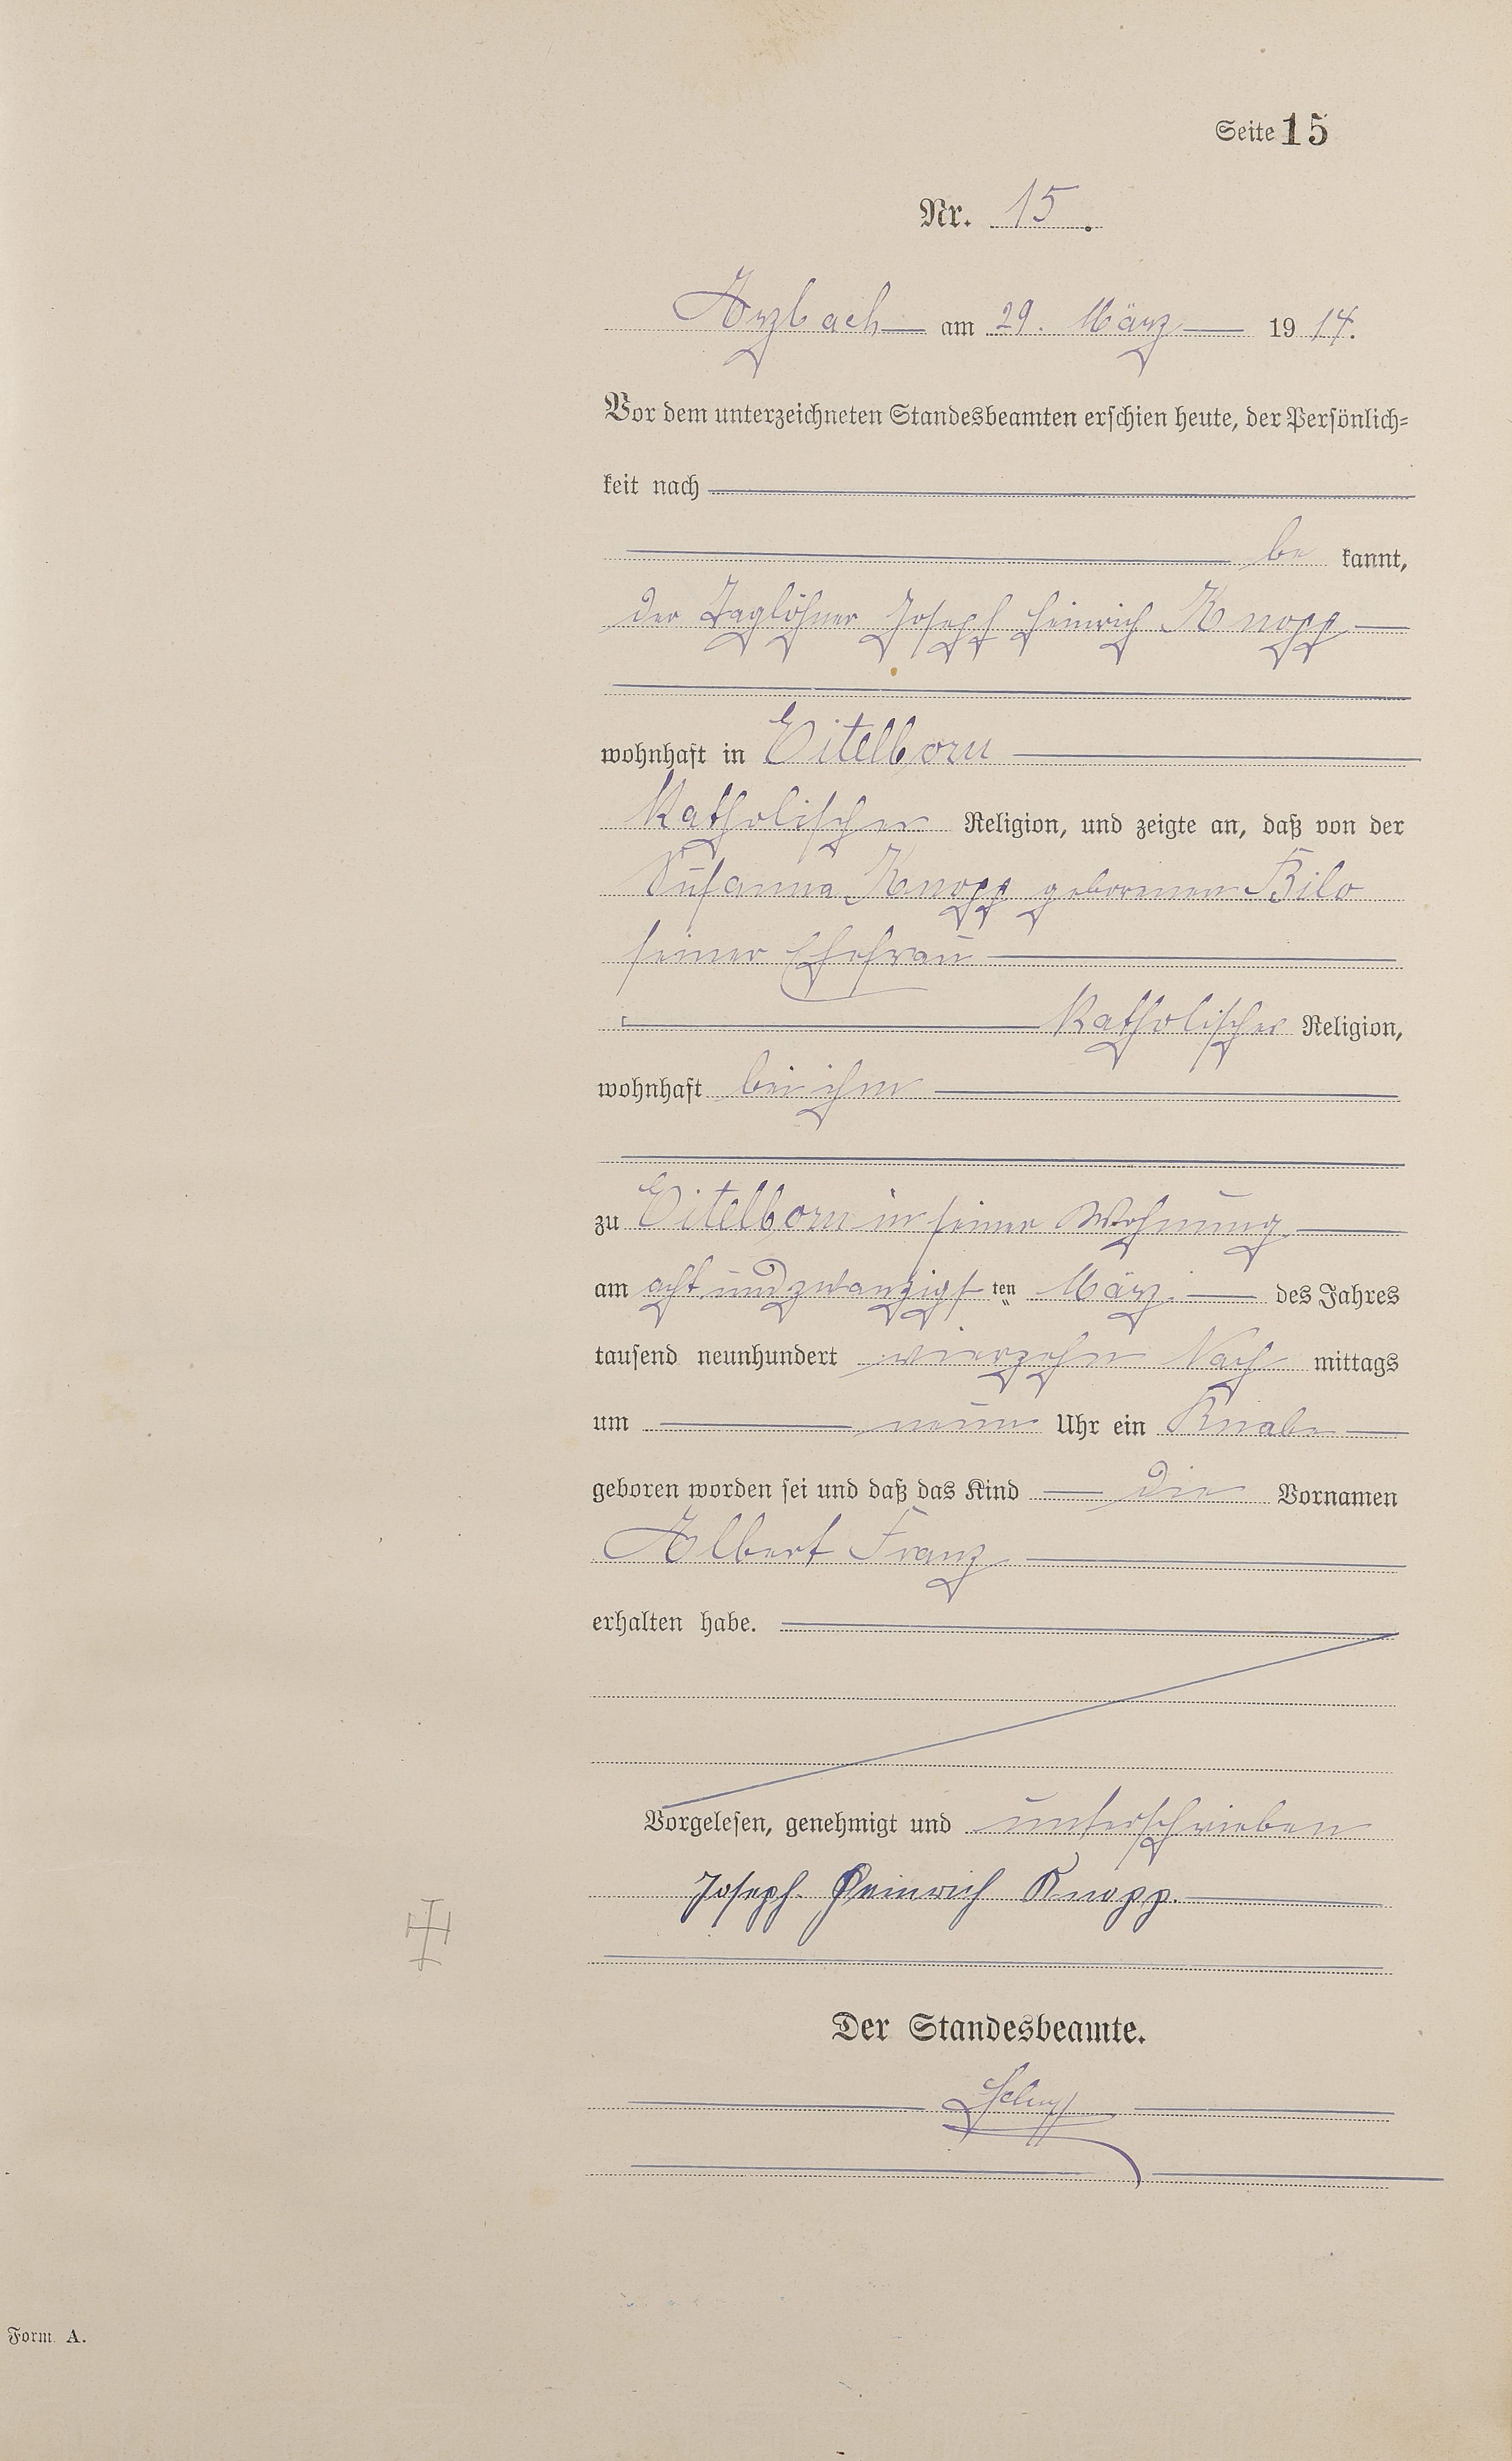 Seite 15
Nr. 15.
Arzbach am 29. März 19 14.
Vor dem unterzeichneten Standesbeamten erschien heute, der Persönlich-
keit nach
be kannt,
der Taglöhner Joseph Heinrich Knopp
wohnhaft in Eitelborn
katholischer Religion, und zeigte an, daß von der
Susanna Knopp geborenen Bilo
seiner Ehefrau
katholischer Religion,
wohnhaft bei ihm
zu Eitelborn in seiner Wohnung
am acht und zwanzigsten März des Jahres
tausend neunhundert vierzehn Nach mittags
um neun Uhr ein Knabe
geboren worden sei und daß das Kind die Vornamen
Albert Franz
erhalten habe.
Vorgelesen, genehmigt und unterschrieben
Joseph Heinrich Knopp.
Der Standesbeamte.
Form A.